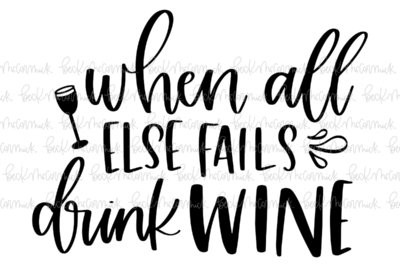 when all
ELSE FAILS
drink WINE